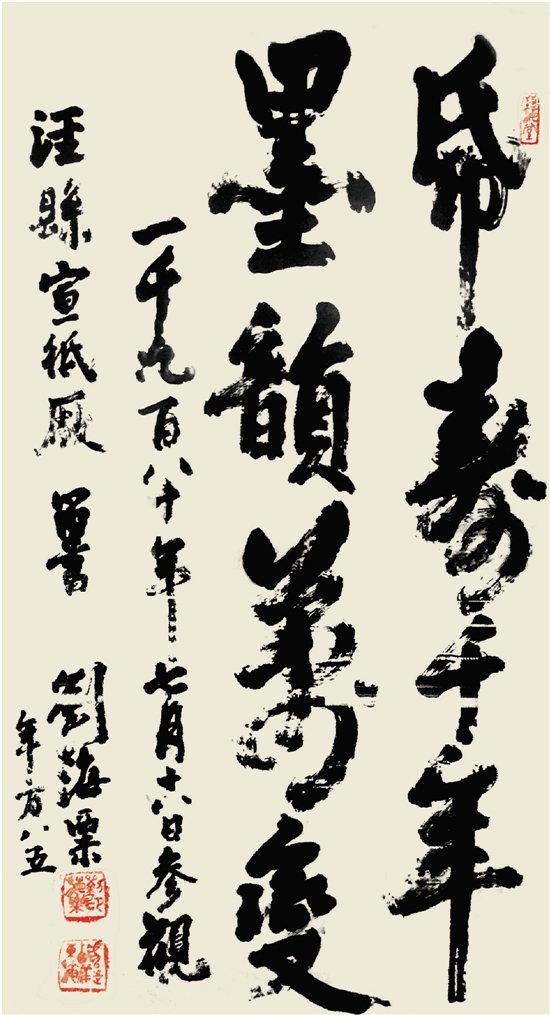 帋寿千年
墨韻萬变
一千九百八十年七月十八日参觀
涇縣宣紙厰留書
劉海粟
年方八五